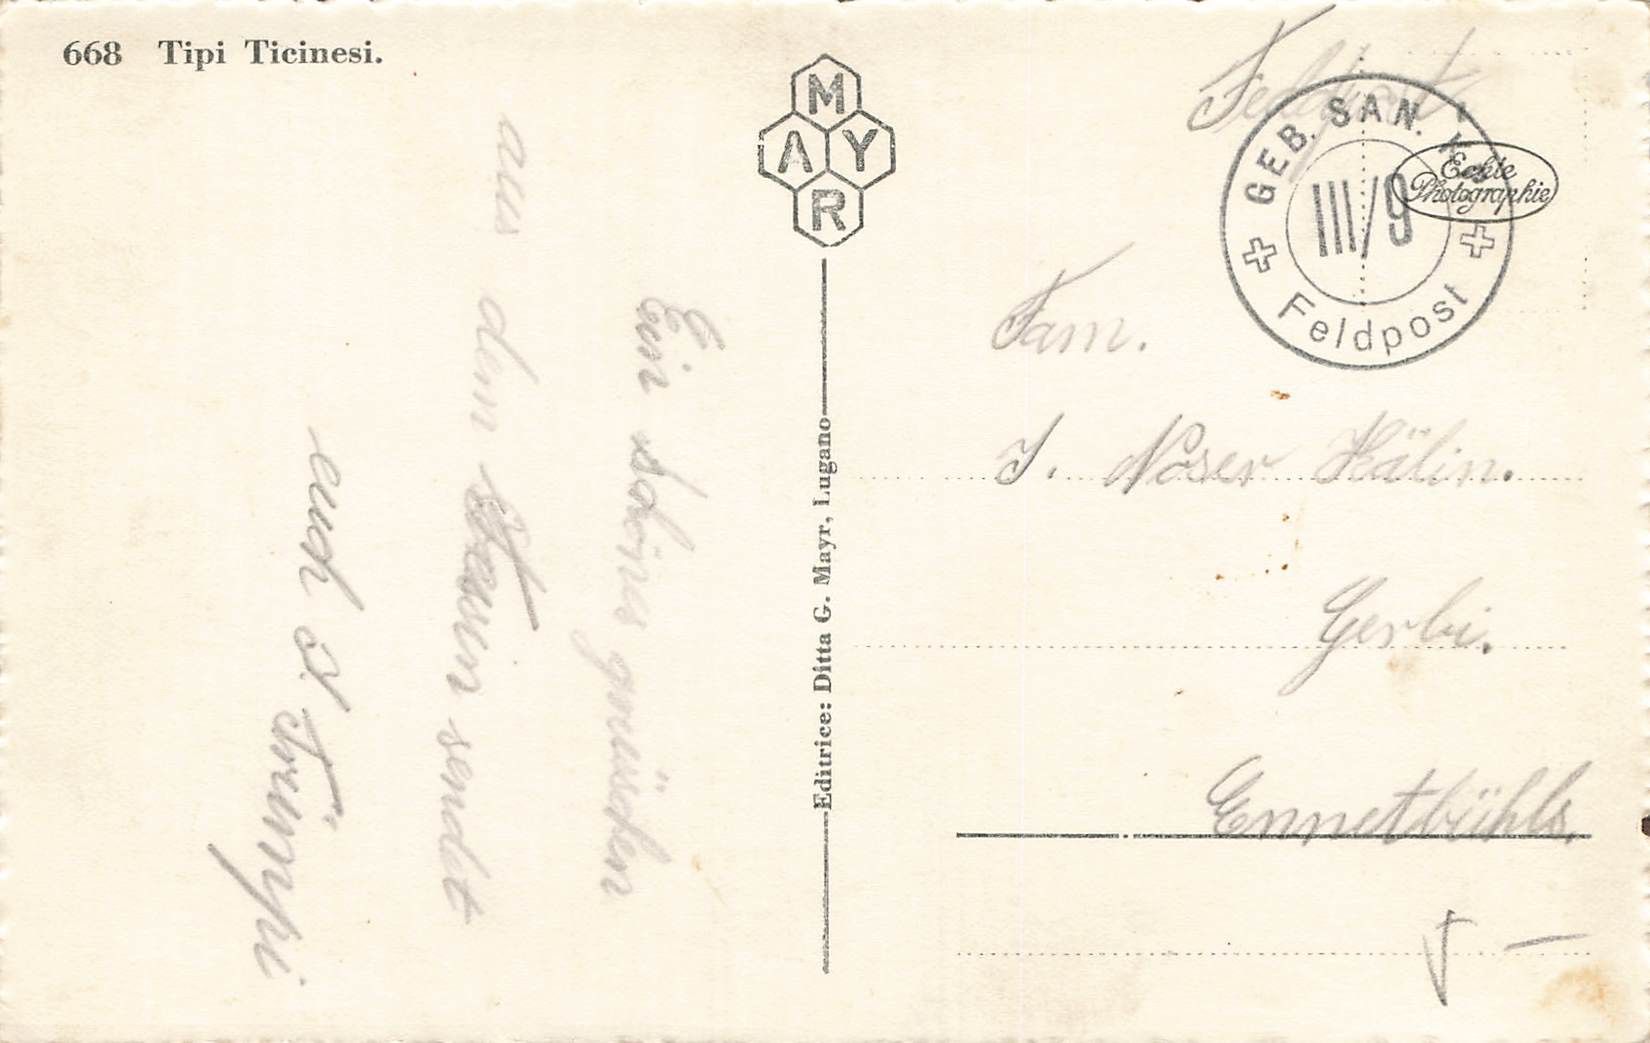 668 Tipi Ticinesi.
MAYR
Editrice: Ditta G. Mayr, Lugano
Feldpost
GEB. SAN. K
III/9
Feldpost
Echte
Photographie
Fam.
J. Noser Hälin.
Gerbi.
Ennetbühls
Ein schönes grüsschen
aus dem sendet
euch